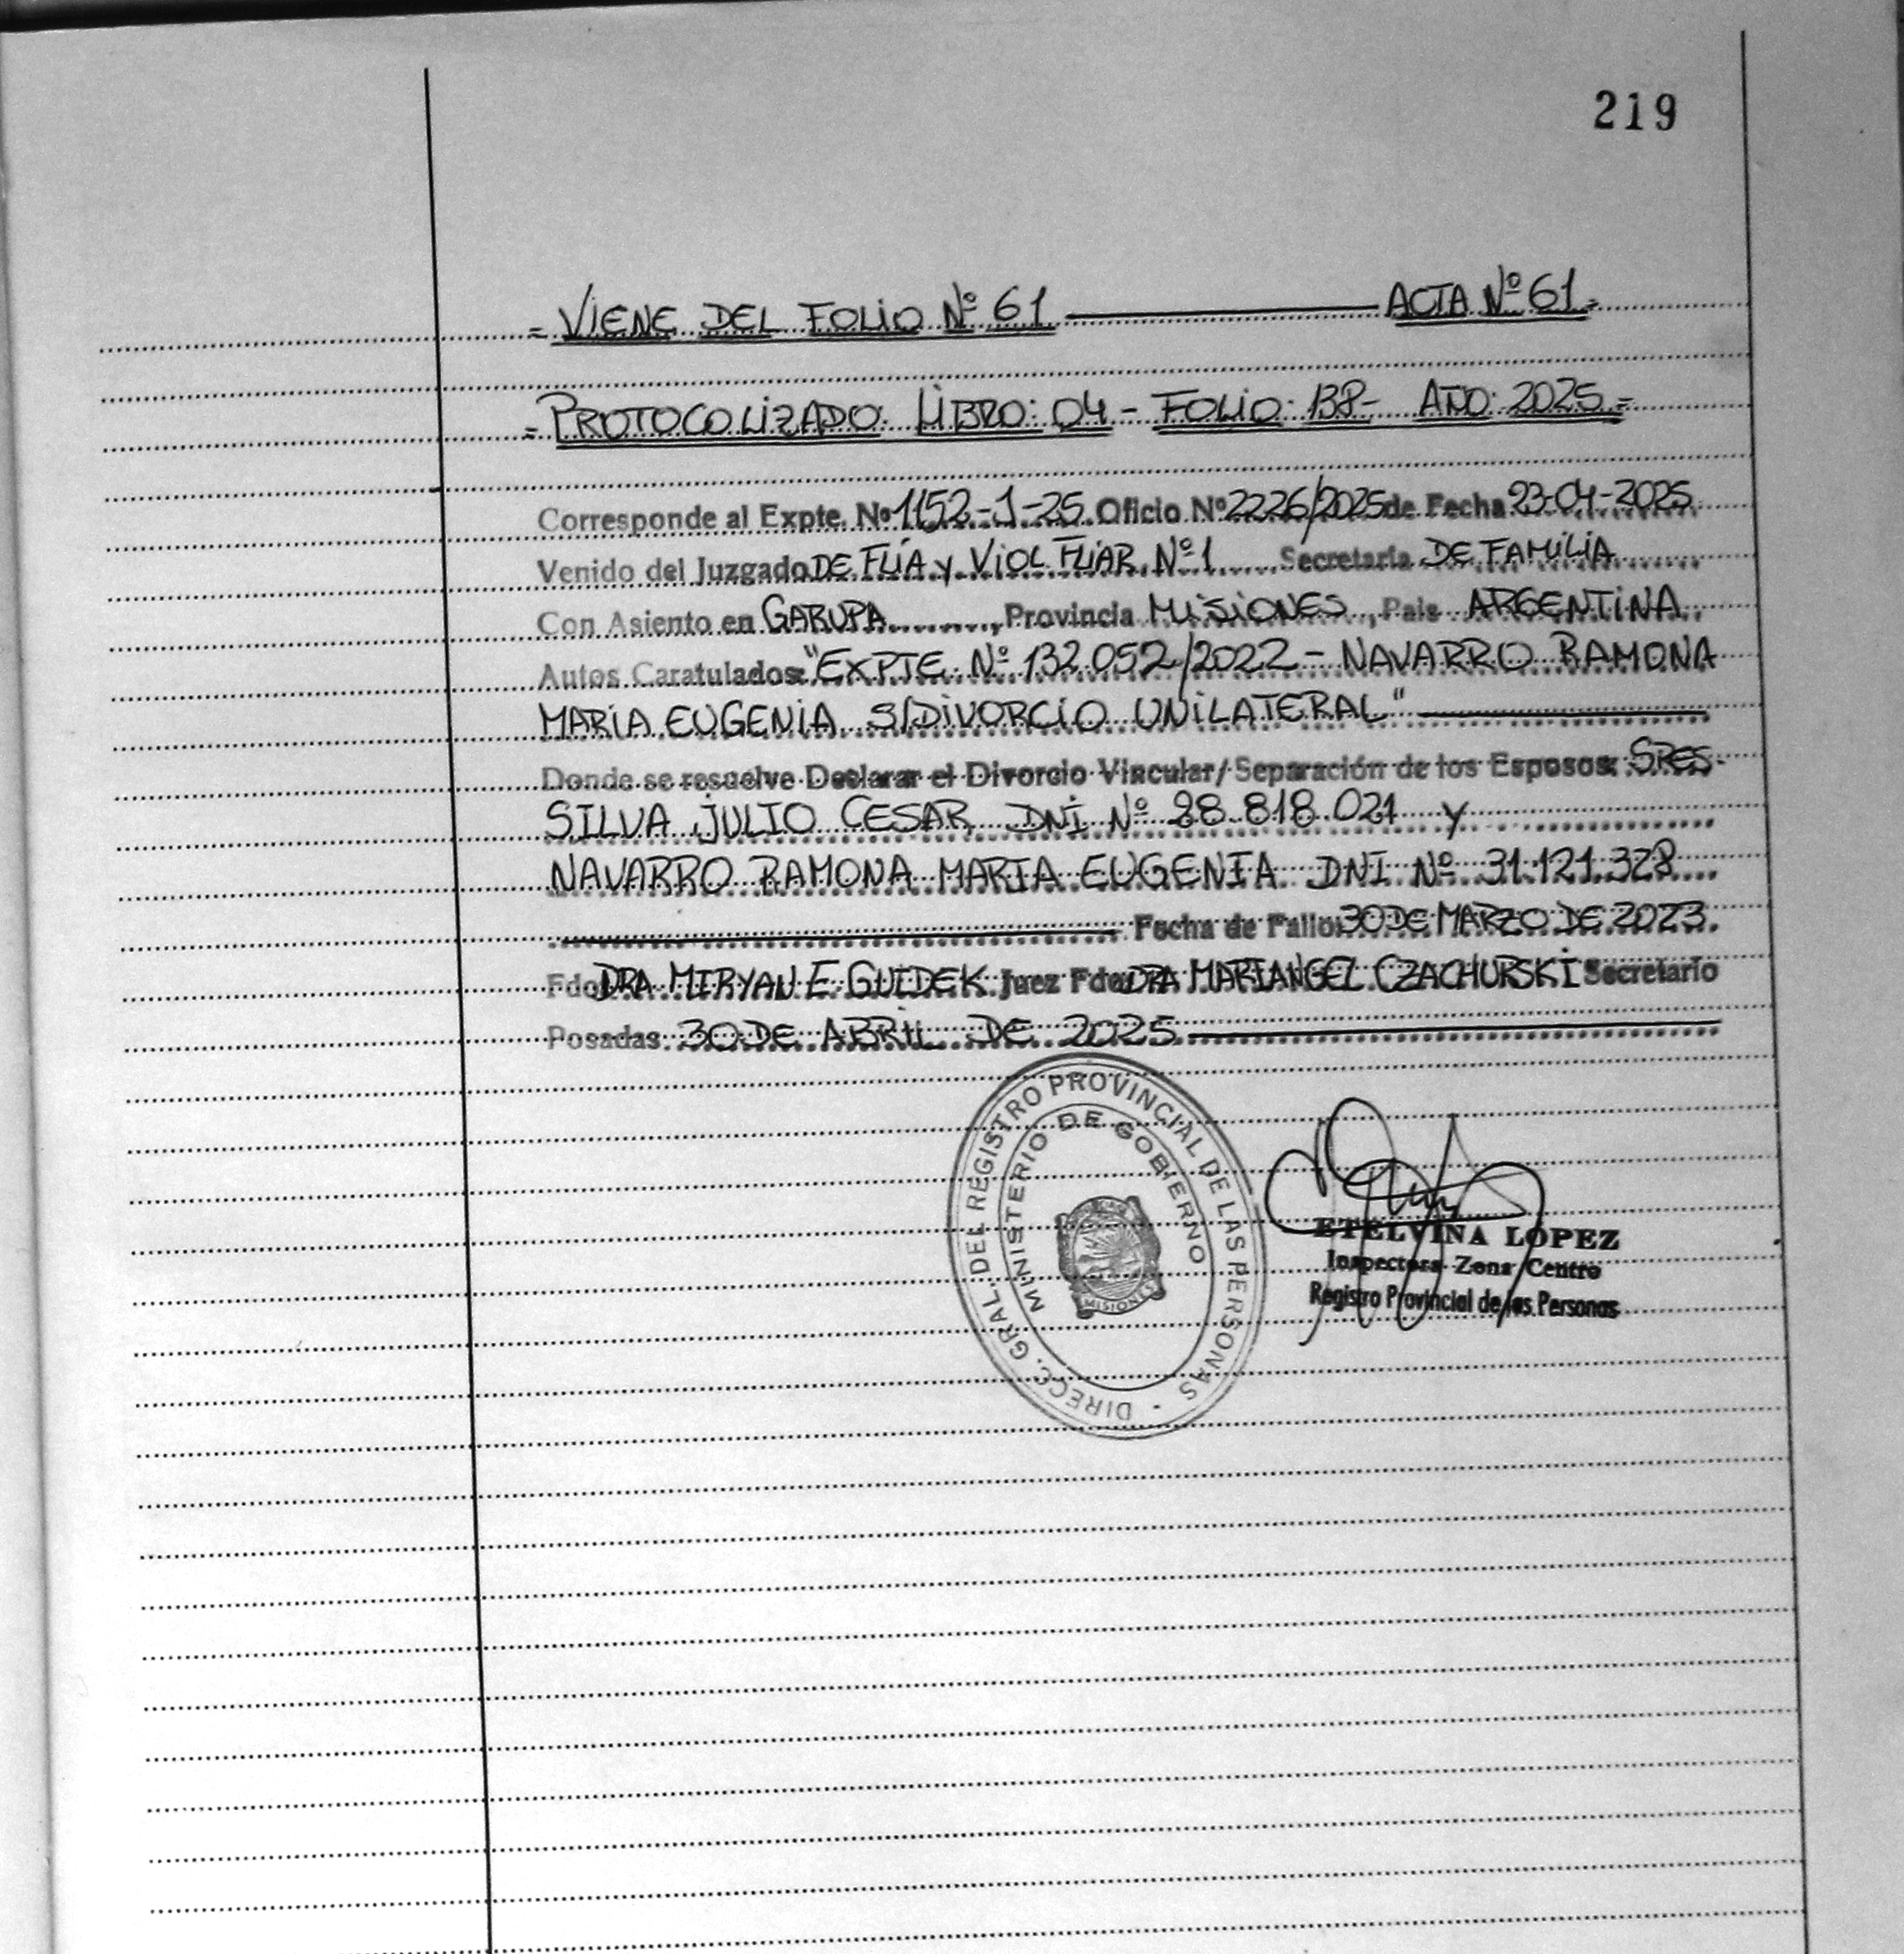 219
= VIENE DEL FOLIO Nº 61 ACTA Nº 61 =
= PROTOCOLIZADO: LIBRO: 04 - FOLIO: 138- AÑO: 2025 =
Corresponde al Expte. Nº 1152-J-25. Oficio Nº 2226/2025 de Fecha 23-04-2025
Venido del Juzgado DE FLIA y VIOL FLIAR. Nº 1 Secretaría DE FAMILIA
Con Asiento en GARUPA, Provincia MISIONES, Pais ARGENTINA.
Autos Caratulados: "EXPTE Nº 132.052/2022 - NAVARRO RAMONA
MARIA EUGENIA S/DIVORCIO UNILATERAL"
Donde se resuelve Declarar el Divorcio Vincular/Separación de los Esposos: SRES
SILVA JULIO CESAR DNI Nº 28.818.021 y
NAVARRO RAMONA MARIA EUGENIA DNI Nº 31.121.328
Fecha de Fallo: 30 DE MARZO DE 2023.
Fdo: DRA MIRYAN E. GUIDEK Juez Fdo: DRA MARIANGEL CZACHURSKI Secretario
Posadas 30 DE ABRIL DE 2025
DIRECC. GRAL. DEL REGISTRO PROVINCIAL DE LAS PERSONAS
MINISTERIO DE GOBIERNO
MISIONES
ETELVINA LOPEZ
Inspectora Zona Centro
Registro Provincial de las Personas